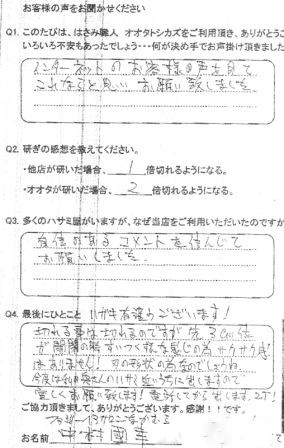 お客様の声をお聞かせください
Q1. このたびは、はさみ職人 オオタトシカズをご利用頂き、ありがとうご
いろいろ不安もあったでしょう･･･何が決め手でお声掛け頂きました
インターネットのお客様の声を見て
これならと思い お願い致しました
Q2. 研ぎの感想を教えてください。
・他店が研いだ場合、 1 倍切れるようになる。
・オオタが研いだ場合、 2 倍切れるようになる。
Q3. 多くのハサミ屋がいますが、なぜ当店をご利用いただいたのですか
自信のあるコメントを信じて
お願いしました。
Q4. 最後にひとこと ハガキ有難うございます!
切れる事は切れるのですが 先3cm位
が開閉の時 すいつく様な感じの為 サクサク感
はありません! 刃の形状の為なのでしょうね
今度は 近いうちに出しますので
宜しくお願い致します!
ご協力頂きまして、ありがとうございます。感謝!!です。
お名前 中村